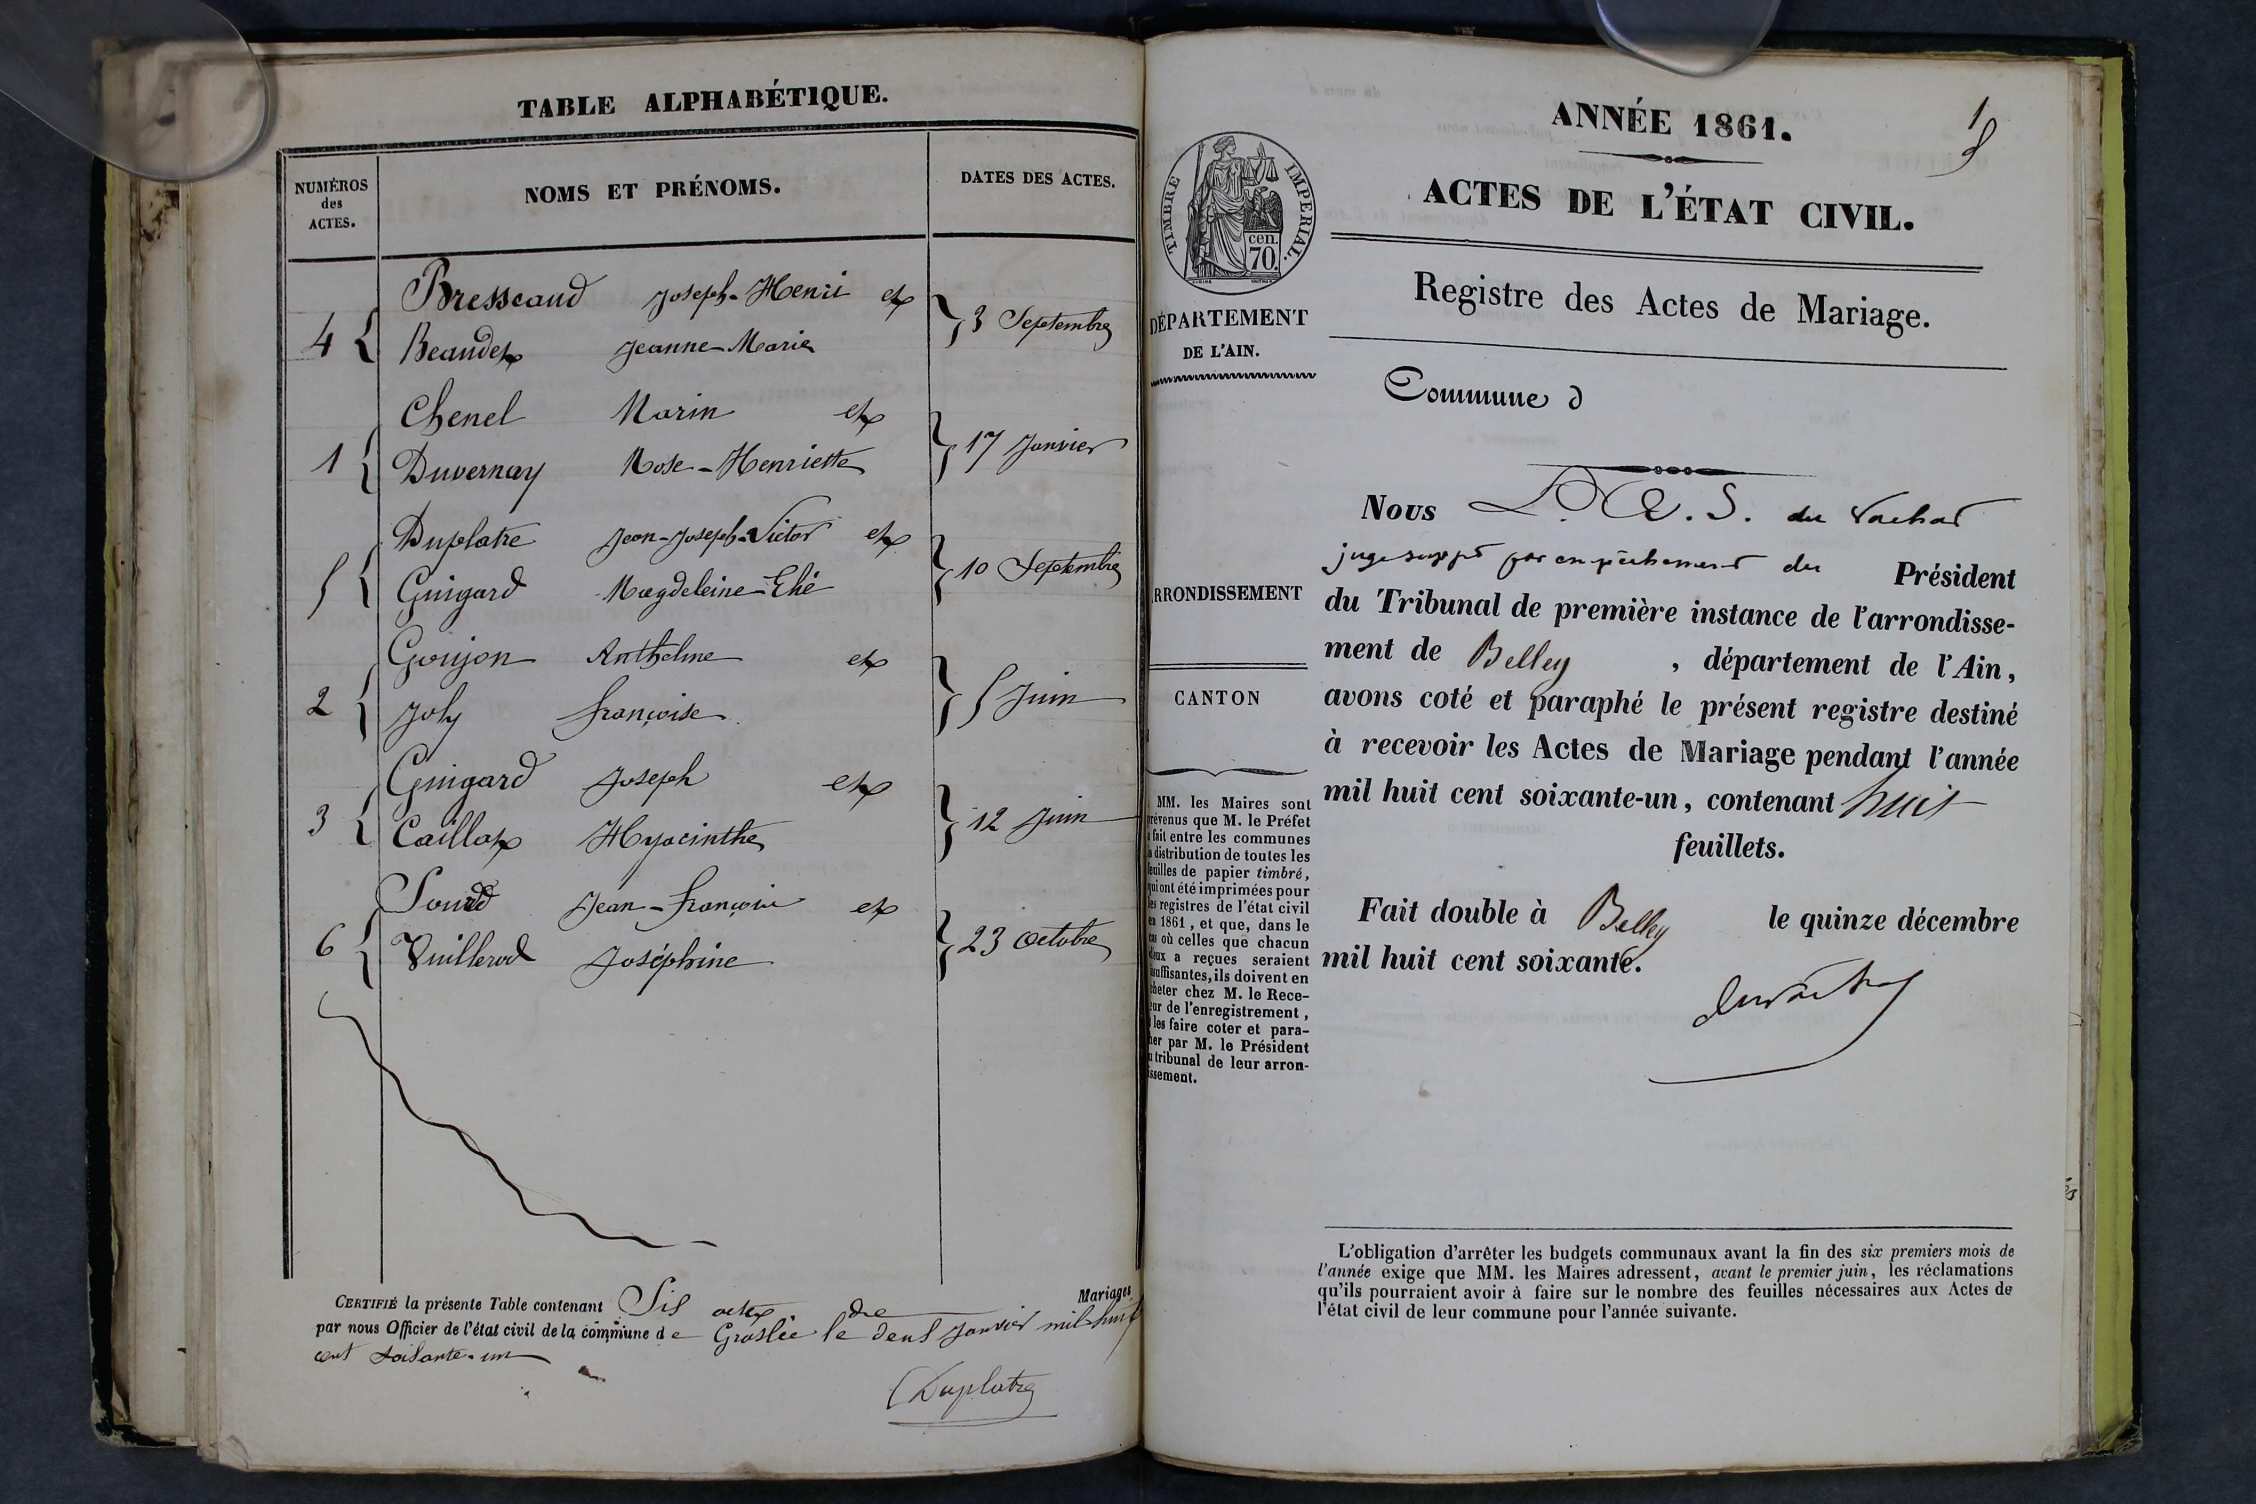 TABLE ALPHABÉTIQUE.
NUMÉROS
des
ACTES.
NOMS ET PRÉNOMS.
DATES DES ACTES.
Bresseaud Joseph-Henri et
4 { } 3 Septembre
Beaudet Jeanne-Marie
Chenel Marin et
1 { } 17 Janvier
Duvernay Rose-Henriette
Duplatre Jean-Joseph-Victor et
5 { } 10 Septembre
Guigard Magdeleine
Goujon Anthelme et
2 { } 5 Juin
Joly françoise
Guigard Joseph et
3 { } 12 Juin
Caillot Hyacinthe
Sourd Jean-françois et
6 { } 23 Octobre
Vuillerod Joséphine
CERTIFIÉ la présente Table contenant Six actes de Mariages
par nous Officier de l'état civil de la commune de Groslée le deux Janvier mil huit
cent soixante-un
Duplatre
1
ANNÉE 1861.
ACTES DE L'ÉTAT CIVIL.
TIMBRE IMPERIAL.
cen.
70.
DÉPARTEMENT
DE L'AIN.
ARRONDISSEMENT
CANTON
MM. les Maires sont
prévenus que M. le Préfet
a fait entre les communes
la distribution de toutes les
feuilles de papier timbré,
qui ont été imprimées pour
les registres de l'état civil
en 1861, et que, dans le
cas où celles que chacun
d'eux a reçues seraient
insuffisantes, ils doivent en
acheter chez M. le Rece-
veur de l'enregistrement,
et les faire coter et para-
pher par M. le Président
du tribunal de leur arron-
dissement.
Registre des Actes de Mariage.
Commune d
Nous du Vachat
juge suppt par empêchement du Président
du Tribunal de première instance de l'arrondisse-
ment de Belley , département de l'Ain,
avons coté et paraphé le présent registre destiné
à recevoir les Actes de Mariage pendant l'année
mil huit cent soixante-un, contenant huit
feuillets.
Fait double à Belley le quinze décembre
mil huit cent soixante.
L'obligation d'arrêter les budgets communaux avant la fin des six premiers mois de
l'année exige que MM. les Maires adressent, avant le premier juin, les réclamations
qu'ils pourraient avoir à faire sur le nombre des feuilles nécessaires aux Actes de
l'état civil de leur commune pour l'année suivante.